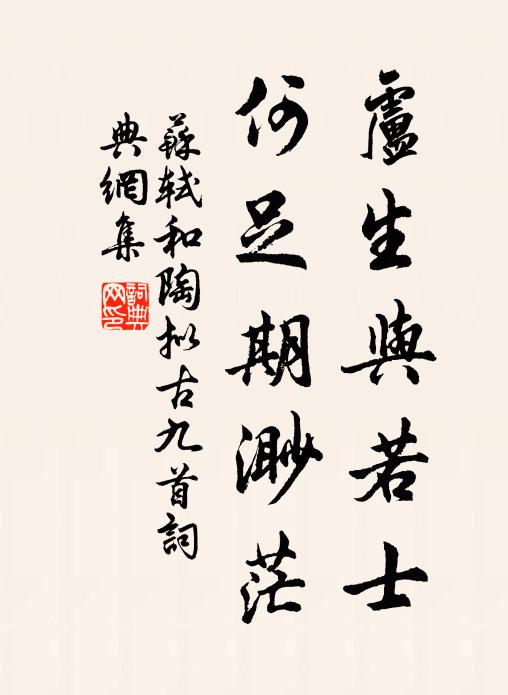 盧生與若士
何足期渺茫
蘇軾和陶拟古九首詞
典網集
詞典
网印